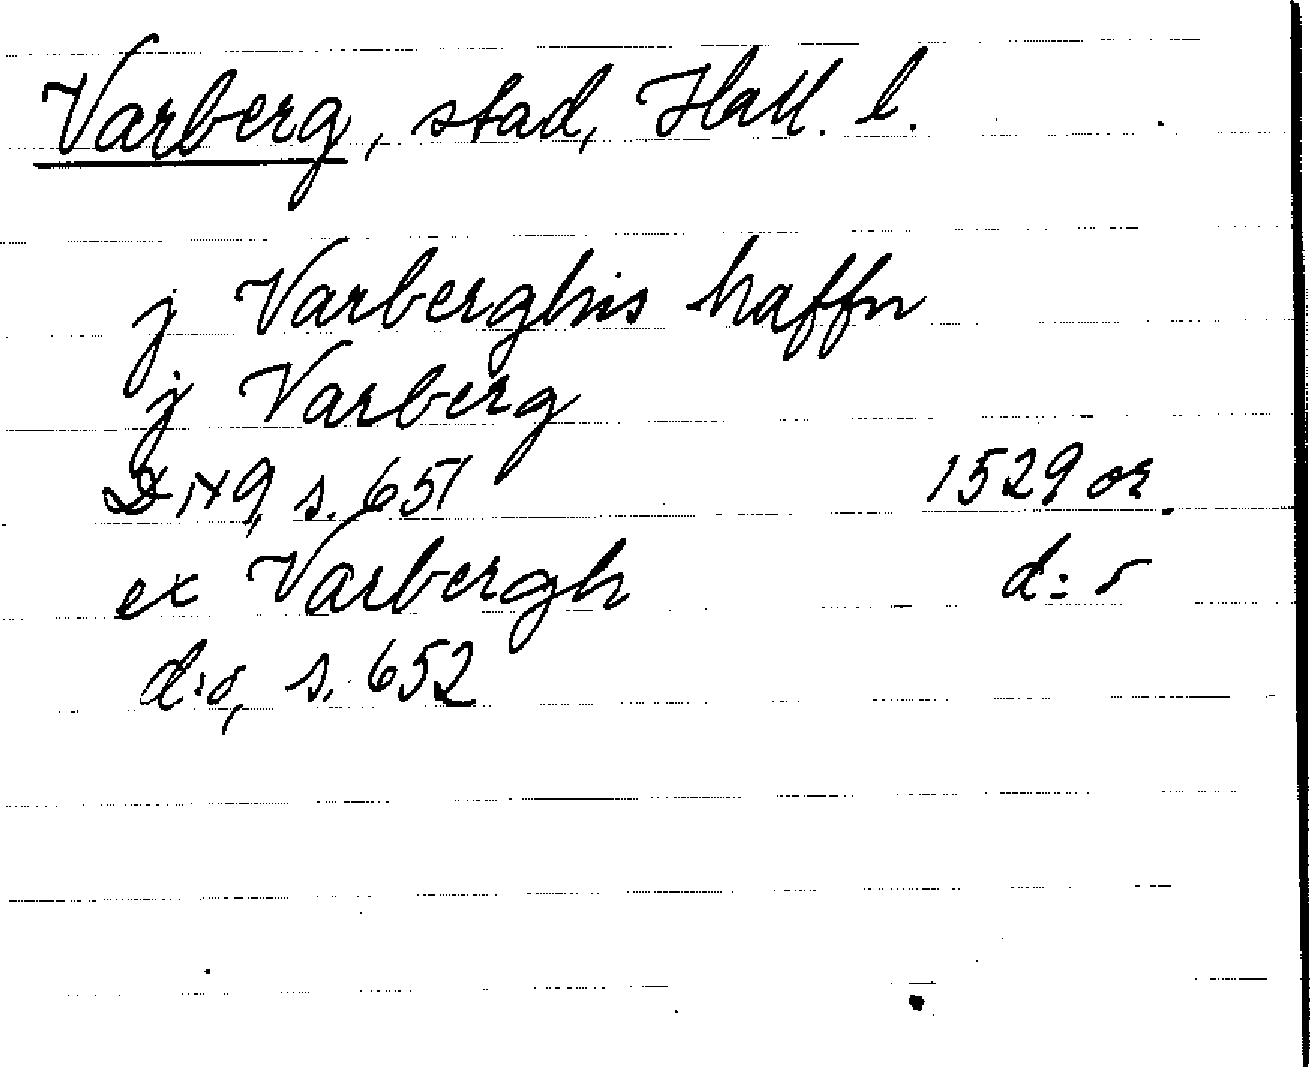 Varberg, stad, Hall. l.
j Varberghis haffn
j Varberg
s. 651 1529 or.
ex Varbergh d:o
d:o, s. 652